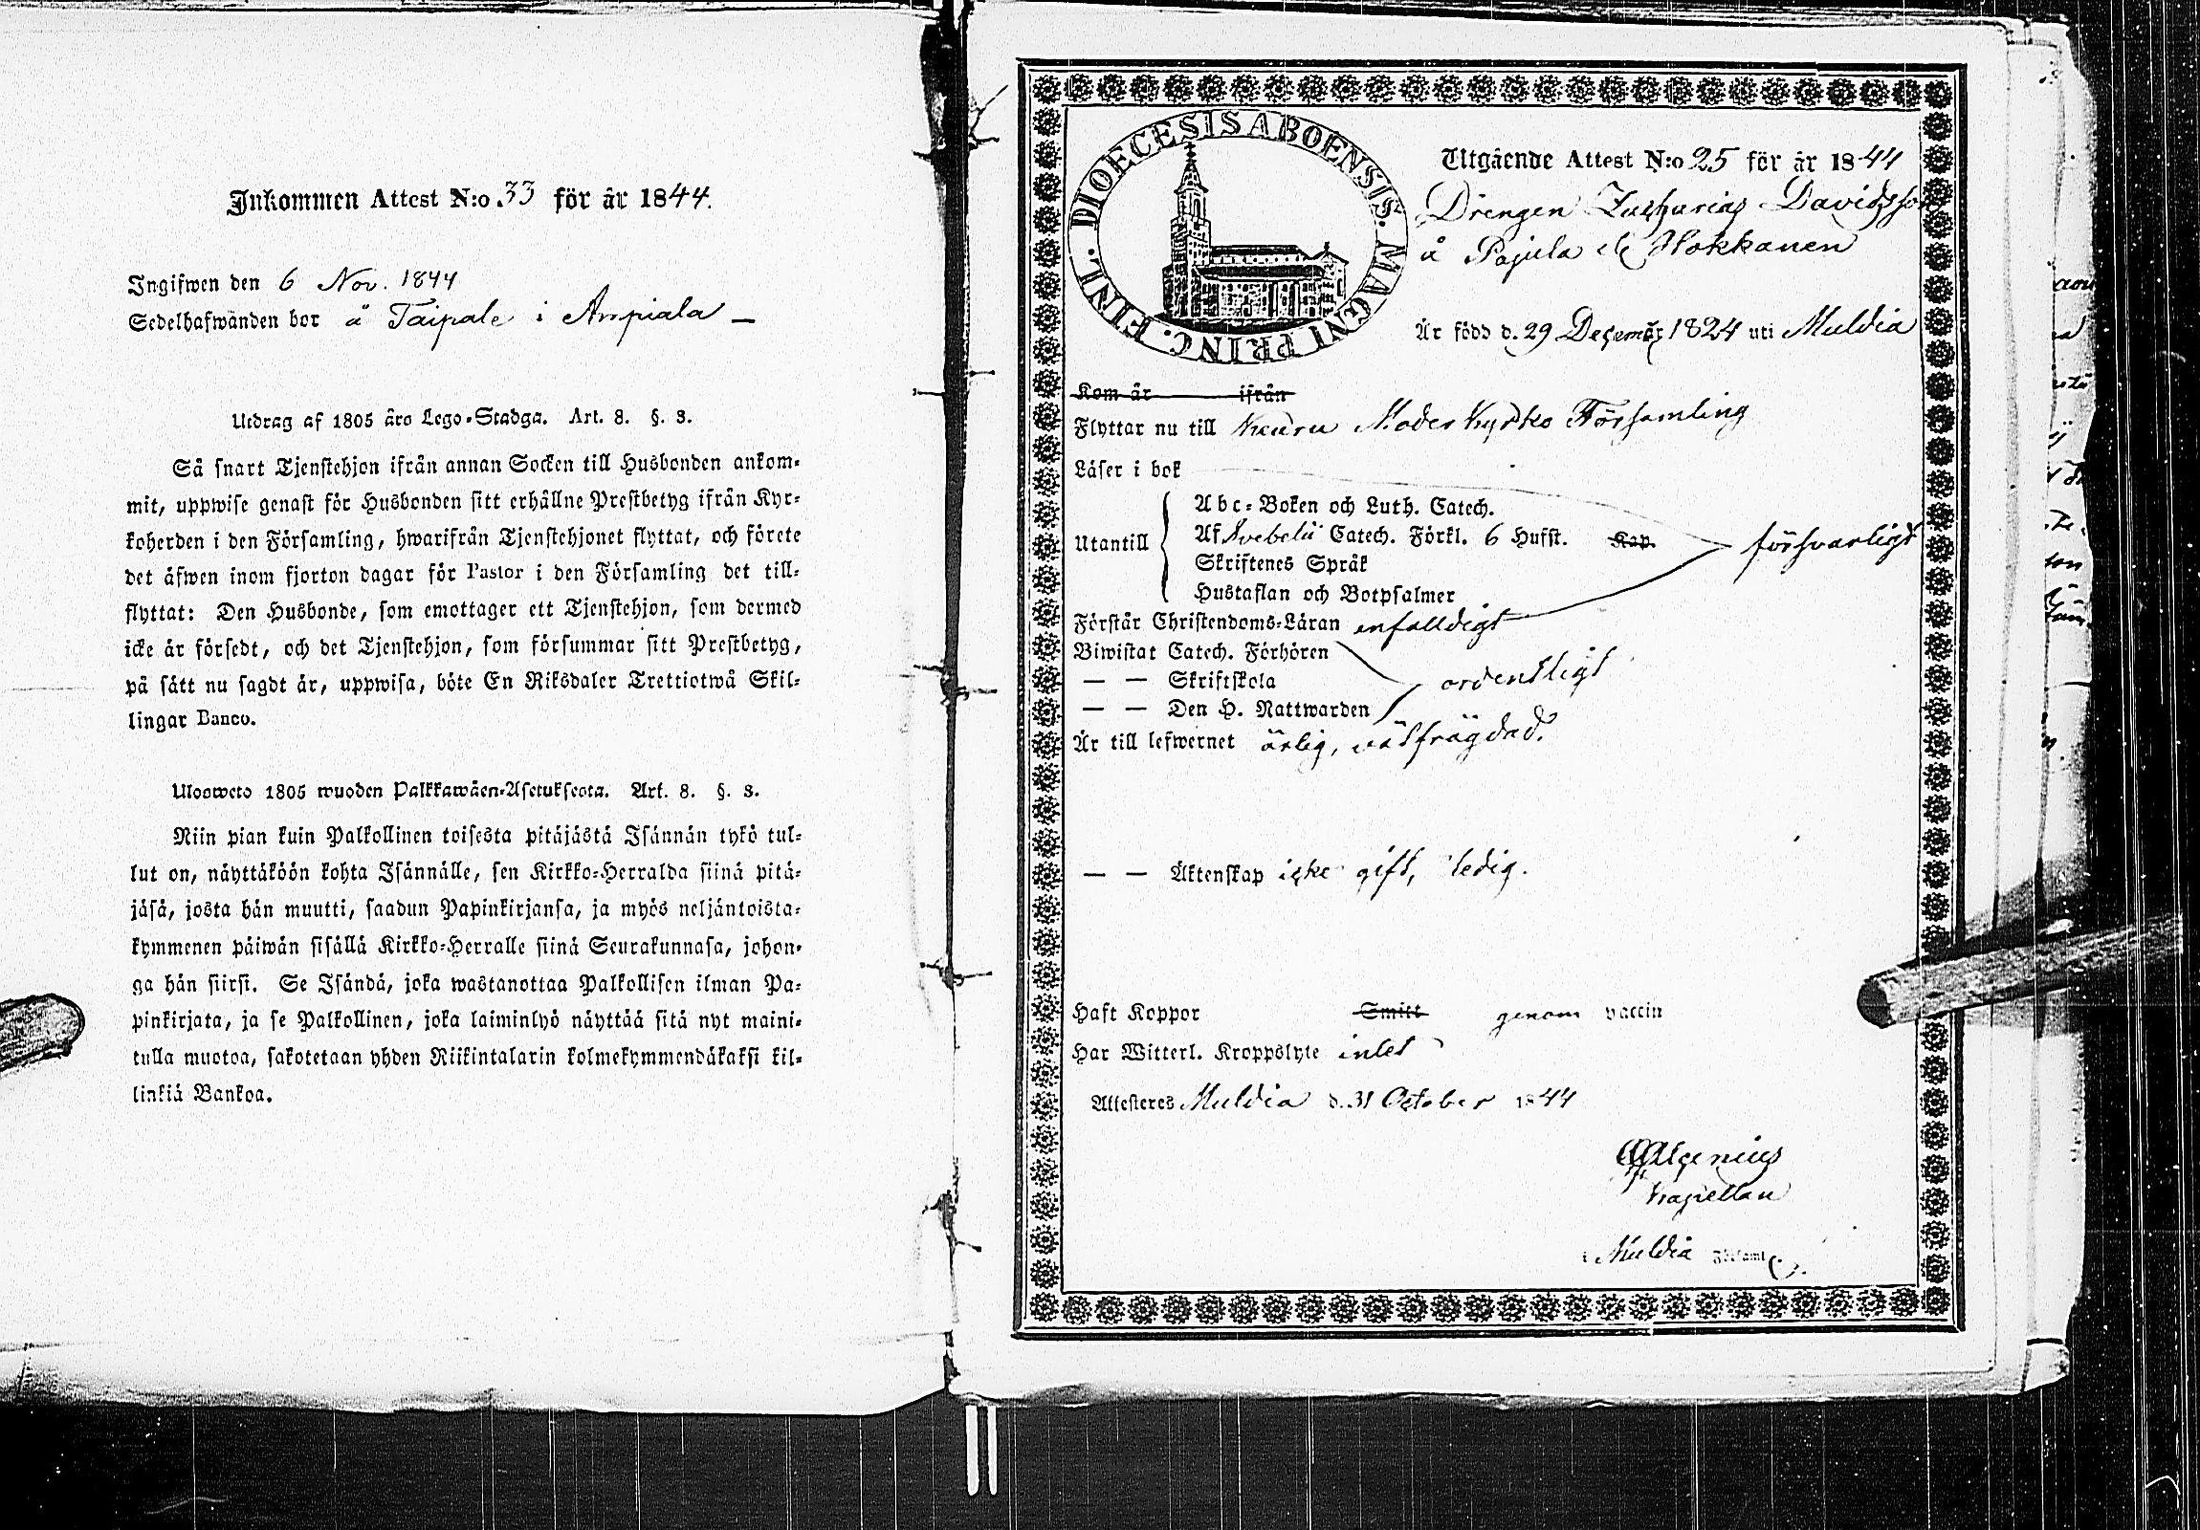 Inkommen Attest N:o 33 för år 1844.
Ingifwen den 6 Nov. 1844
Sedelhafwanden bor å Taipale i Ampiala —
Utdrag af 1805 års Lego-Stadga. Art. 8. §. 3.
Så snart Tjenstehjon ifrån annan Socken till Husbonden ankom-
mit, uppwise genast för Husbonden sitt erhållne Prestbetyg ifrån Kyr-
koherden i den Församling, hwarifrån Tjenstehjonet flyttat, och förete
det äfwen inom fjorton dagar för Pastor i den Församling det till-
flyttat: Den Husbonde, som emottager ett Tjenstehjon, som dermed
icke är försedt, och det Tjenstehjon, som försummar sitt Prestbetyg,
på sätt nu sagdt är, uppwisa, böte En Riksdaler Trettiotwå Skil-
lingar Banco.
Ulosweto 1805 wuoden Palkkawäen-Asetuksesta. Art. 8. §. 3.
Niin pian kuin Palkollinen toisesta pitäjästä Isännän tykö tul-
lut on, näyttäköön kohta Isännälle, sen Kirkko-Herralda siinä pitä-
jäsä, josta hän muutti, saadun Papinkirjansa, ja myös neljäntoista-
kymmenen päiwän sisällä Kirkko-Herralle siinä Seurakunnasa, johon-
ga hän siirsi. Se Isändä, joka wastanottaa Palkollisen ilman Pa-
pinkirjata, ja se Palkollinen, joka laiminlyö näyttää sitä nyt maini-
tulla muotoa, sakotetaan yhden Riikintalarin kolmekymmendäkaksi kil-
linkiä Bankoa.
DIOECESIS ABOENSIS. MAGNI PRINC. FINL.
Utgående Attest N:o 25 för år 1844
Drengen Zacharias Davidsson
å Pajula Hokkanen
Är född d. 29 Decemb 1824 uti Muldia
Kom år ifrån
Flyttar nu till Keuru Moderkyrko Församling
Läser i bok
Abc-Boken och Luth. Catech.
Utantill Af Svebelii Catech. Förkl. 6 Hufst. Kap. försvarligt
Skriftenes Språk
Hustaflan och Botpsalmer
Förstår Christendoms-Läran enfalldigt
Biwistat Catech. Förhören
— — Skriftskola ordentligt
— — Den H. Nattwarden
Är till lefwernet ärlig, välfrägdad.
— — Äktenskap icke gift, ledig.
Haft Koppor Smitt genom vaccin
Har Witterl. Kroppslyte intet
Attesteres Muldia d. 31 October 1844
Kapellan
i Muldia Församl.